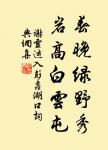 春晚綠野秀
岩高白雲屯
謝靈運入彭蠡湖口詞
典佣集